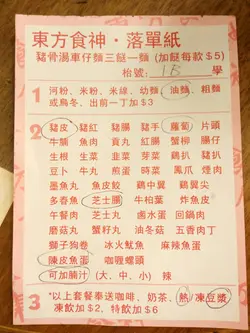 東方食神·落單紙
豬骨湯車仔麵三餸一麵 (加餸每款$5)
枱號: 1B 學
1 河粉、米粉、米線、幼麵、油麵、粗麵
或烏冬、出前一丁加$3
2 豬皮 豬紅 豬腸 豬手 蘿蔔 片頭
牛腩 魚肉 貢丸 紅腸 蟹柳 腸仔
生根 生菜 韮菜 芽菜 鷄扒 豬扒
豆卜 牛丸 煎蛋 時菜 鳳爪 煙肉
墨魚丸 魚皮餃 鷄中翼 鷄翼尖
多春魚 芝士腸 牛柏葉 炸魚皮
午餐肉 芝士丸 鹵水蛋 回鍋肉
蘑菇丸 蟹籽丸 油魚菇 五香肉丁
獅子狗卷 冰火魷魚 麻辣魚蛋
陳皮魚蛋 咖喱螺頭
可加腩汁 (大、中、小) 辣
3 *以上套餐奉送咖啡、奶茶、熱/凍豆漿
凍飲加$2, 特飲加$6